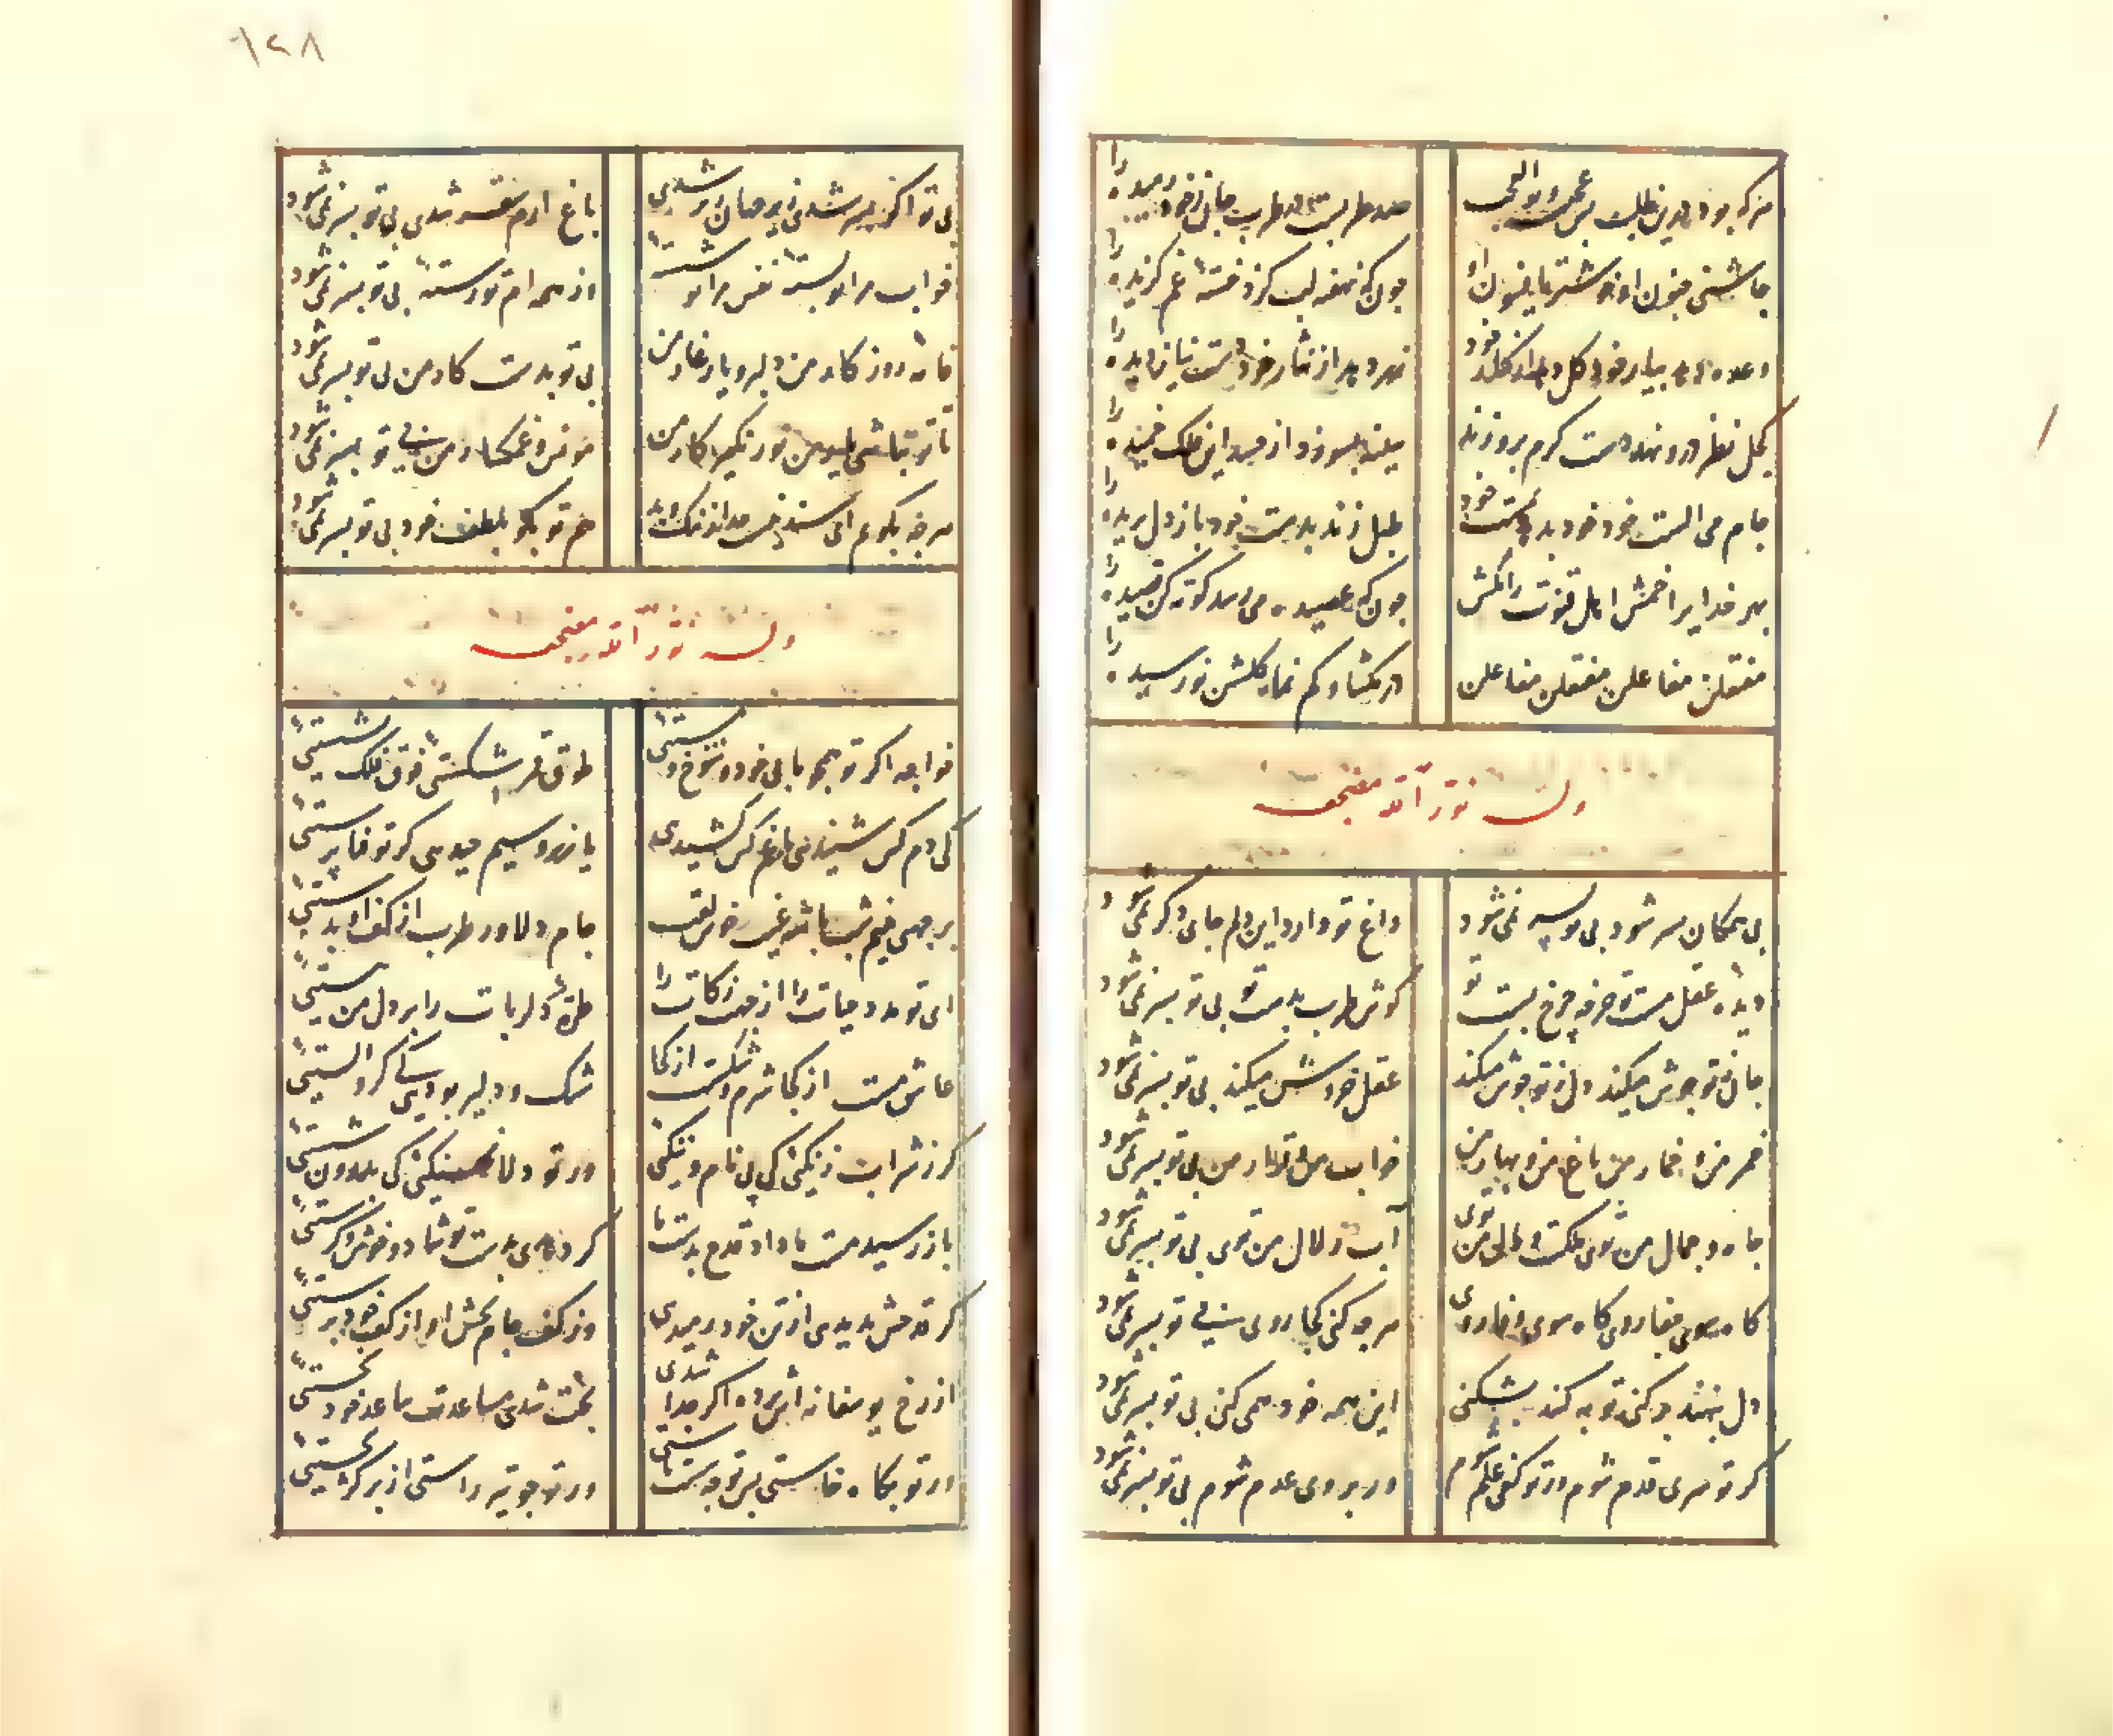 ۱۲۸
هر که بود درین طلب بس عجبست و بوالعجب صد طربست در طرب جان ز خود رمیده را
چاشنی جنون او خوشتر یا فسون او چون که نهفته لب گزد خسته غم گزیده را
وعده دهد بیار خود گل دهد از کنار خود پر کند از خمار خود دیده خون چکیده را
کحل نظر درو نهد دست کرم برو زند سینه بسوزد از حسد این فلک خمیده را
جام می الست خود خود بدهد بمست خود طبل زند بدست خود باز دل پریده را
بهر خدای را خمش خوی سکوت را مکش چون که عصیده می رسد کوته کن قصیده را
مفتعلن مفاعلن مفتعلن مفاعلن در مگشا و کم نما گلشن نورسیده را
وله نور الله مضجعه
بی همگان بسر شود بی تو بسر نمی شود داغ تو دارد این دلم جای دگر نمی شود
دیده عقل مست تو چرخه چرخ پست تو گوش طرب بدست تو بی تو بسر نمی شود
جان ز تو جوش میکند دل ز تو نوش میکند عقل خروش میکند بی تو بسر نمی شود
خمر من و خمار من باغ من و بهار من خواب من و قرار من بی تو بسر نمی شود
جاه و جلال من توی ملکت و مال من توی آب زلال من توی بی تو بسر نمی شود
گاه سوی وفا روی گاه سوی جفا روی هر چه کنی کجا روی بی تو بسر نمی شود
دل بنهند بر کنی توبه کنند بشکنی این همه خود همی کنی بی تو بسر نمی شود
گر تو سری قدم شوم ور تو کفی علم شوم ور بروی عدم شوم بی تو بسر نمی شود
بی تو اگر بسر شدی زیر جهان زبر شدی باغ ارم سقر شدی بی تو بسر نمی شود
خواب مرا ببسته نقش مرا بشسته از همه ام گسسته بی تو بسر نمی شود
بی تو بدست کار من بی تو بسر نمی شود
مونس و غمگسار من بی تو بسر نمی شود
هر چه بگویم ای سند نیست جدا ز نیک و بد هم تو بگو بلطف خود بی تو بسر نمی شود
وله نور الله مضجعه
خواجه اگر تو همچو ما بی خود و شوخ و مستیی طوق قمر شکستیی فوق فلک نشستیی
کی دم کس شنیدیی یا غم کس کشیدیی یا زر و سیم چیدیی گر تو فنا پرستیی
برجهیی به نیم شب با شه غیب خوش لقب جام دلاور طرب از کف او بدستیی
ای تو مدد حیات را از جهت زکات را طره دلربات را بر دل من ببستیی
عاشق مست از کجا شرم و شکست از کجا شنگ و دلیر بودیی گر گرو الستیی
ور ز شراب دنگیی کی پی نام و ننگیی ور تو دلا نهنگیی کی بلب دون شستیی
باز رسید مست ما داد قدح بدست ما گر دهدی بدست تو شاد و خوش و گزستیی
گر قدحش بدیدیی از تن خود رمیدیی وز کف جام بخش او از کف خود برستیی
از رخ یوسفانه اش بیخود اگر شدی جدا بخت شدی مساعدت ساعد خود بخستیی
ور تو بگاه خاستی پس تو چه سست پاستی ور تو چو تیر راستی از پر کژ بجستیی